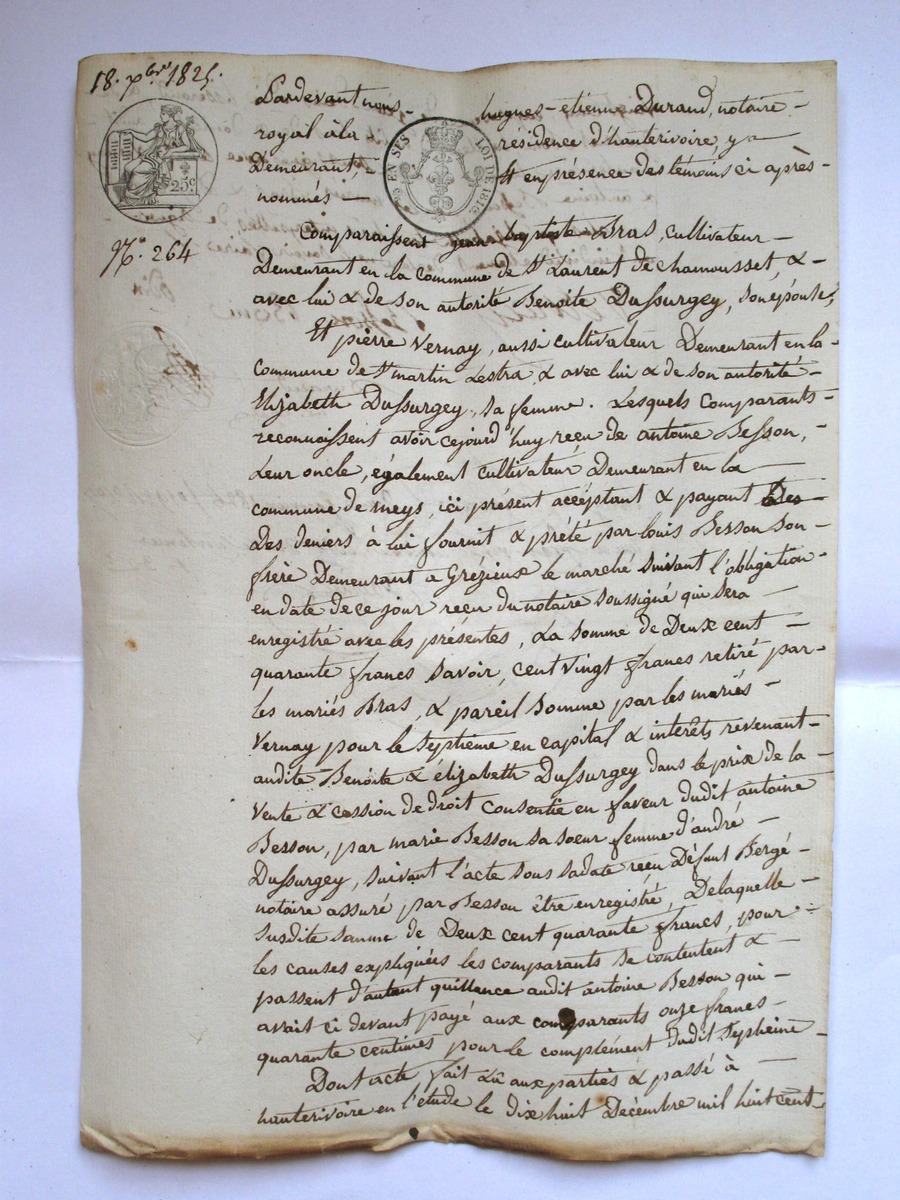 18. xbre 1825.
25c
EN SES
LOI DE 1816
No. 264
Pardevant nous hugues-etienne Durand, notaire
royal à la résidence d'hauterivoire, y
Demeurant, Et en présence des témoins ci après
nommés
Comparaissent jean baptiste Bras, cultivateur
Demeurant en la commune de St Laurent de chamousset, &
avec lui & de son autorité Benoite Dussurgey, son épouse,
Et pierre Vernay, aussi cultivateur Demeurant en la
commune de St martin Lestra & avec lui & de son autorité
Elizabeth Dussurgey, sa femme. Lesquels comparants
reconnaissent avoir cejourd'huy reçu de antoine Besson,
Leur oncle, également cultivateur, Demeurant en la
commune de meys, ici présent accéptant & payant Des
Des deniers à lui fournit & prété par louis Besson son
frère Demeurant a Grézieux le marché suivant l'obligation
en date de ce jour reçu du notaire soussigné qui sera
enregistré avec les présentes, La somme de Deux cent
quarante francs savoir, cent vingt francs retiré par
les mariés Bras, & pareil somme par les mariés
Vernay pour le septième en capital & interêts revenant
audite Benoite & élizabeth Dussurgey dans le prix de la
vente & cession de droit consentie en faveur dudit antoine
Besson, par marie Besson sa soeur femme d'andré
Dussurgey, suivant l'acte sous sa date reçu Défunt Bergé
notaire assuré par Besson être enregistré, Delaquelle
susdite somme de Deux cent quarante francs, pour
les causes expliquées les comparants se contentent &
passent d'autant quittance audit antoine Besson qui
avait ci devant payé aux comparants onze francs
quarante centimes pour le complément dudit septieine
Dont acte, fait Lû aux parties & passé à
hauterivoire en l'étude le dix huit Décembre mil huit cent